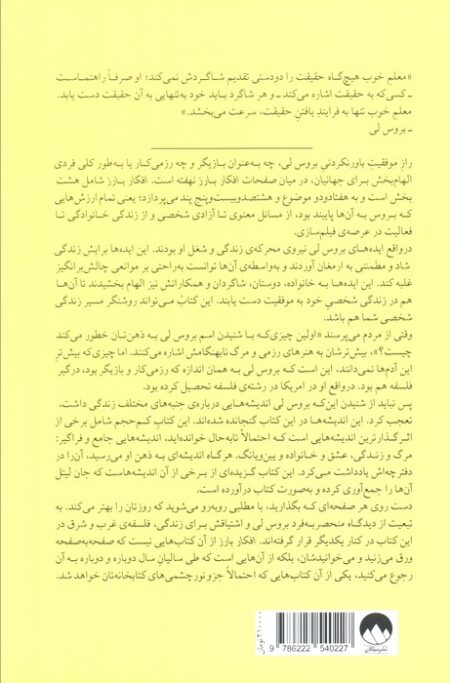 «معلمِ خوب هیچ‌گاه حقیقت را دودستی تقدیمِ شاگردش نمی‌کند؛ او صرفاً راهنماست
ـ کسی‌که به حقیقت اشاره می‌کند ـ و هر شاگرد باید خود به‌تنهایی به آن حقیقت دست یابد.
معلمِ خوب تنها به فرایندِ یافتنِ حقیقت، سرعت می‌بخشد.»
ـ بروس لی
رازِ موفقیتِ باورنکردنیِ بروس لی، چه به‌عنوان بازیگر و چه رزمی‌کار یا به‌طور کلی فردی
الهام‌بخش برای جهانیان، در میان صفحات افکارِ بارز نهفته است. افکارِ بارز شامل هشت
بخش است و به هفتادودو موضوع و هشتصدوبیست‌وپنج پند می‌پردازد؛ یعنی تمام ارزش‌هایی
که بروس به آن‌ها پایبند بود، از مسائل معنوی تا آزادی شخصی و از زندگی خانوادگی تا
فعالیت در عرصه‌ی فیلم‌سازی.
درواقع ایده‌های بروس لی نیروی محرکه‌ی زندگی و شغل او بودند. این ایده‌ها برایش زندگی
شاد و مطمئنی به ارمغان آوردند و به‌واسطه‌ی آن‌ها توانست به‌راحتی بر موانعی چالش‌برانگیز
غلبه کند. این ایده‌ها به خانواده، دوستان، شاگردان و همکارانش نیز الهام بخشیدند تا آن‌ها
هم در زندگی شخصیِ خود به موفقیت دست یابند. این کتاب می‌تواند روشنگر مسیر زندگی
شخصی شما هم باشد.
وقتی از مردم می‌پرسند «اولین چیزی‌که با شنیدن اسم بروس لی به ذهن‌تان خطور می‌کند
چیست؟»، بیش‌ترشان به هنرهای رزمی و مرگ نابهنگامش اشاره می‌کنند. اما چیزی‌که بیش‌ترِ
این آدم‌ها نمی‌دانند، این است که بروس لی به همان اندازه که رزمی‌کار و بازیگر بود، درگیر
فلسفه هم بود. درواقع او در امریکا در رشته‌ی فلسفه تحصیل کرده بود.
پس نباید از شنیدن این‌که بروس لی اندیشه‌هایی درباره‌ی جنبه‌های مختلف زندگی داشت،
تعجب کرد. این اندیشه‌ها در این کتاب گنجانده شده‌اند. این کتابِ کم‌حجم شامل برخی از
اثرگذارترین اندیشه‌هایی است که احتمالاً تابه‌حال خوانده‌اید، اندیشه‌هایی جامع و فراگیر:
مرگ و زندگی، عشق و خانواده و یین‌ویانگ. هرگاه اندیشه‌ای به ذهن او می‌رسید، آن‌را در
دفترچه‌اش یادداشت می‌کرد. این کتاب گزیده‌ای از برخی از آن اندیشه‌هاست که جان لیتل
آن‌ها را جمع‌آوری کرده و به‌صورت کتاب درآورده است.
دست روی هر صفحه‌ای که بگذارید، با مطلبی روبه‌رو می‌شوید که روزتان را بهتر می‌کند. به
تبعیت از دیدگاه منحصربه‌فرد بروس لی و اشتیاقش برای زندگی، فلسفه‌ی غرب و شرق در
این کتاب در کنار یکدیگر قرار گرفته‌اند. افکارِ بارز از آن کتاب‌هایی نیست که صفحه‌به‌صفحه
ورق می‌زنید و می‌خوانیدشان، بلکه از آن‌هایی است که طی سالیانِ سال دوباره و دوباره به آن
رجوع می‌کنید، یکی از آن کتاب‌هایی که احتمالاً جزو نورچشمی‌های کتابخانه‌تان خواهد شد.
نشر میلکان
9 786222 540227